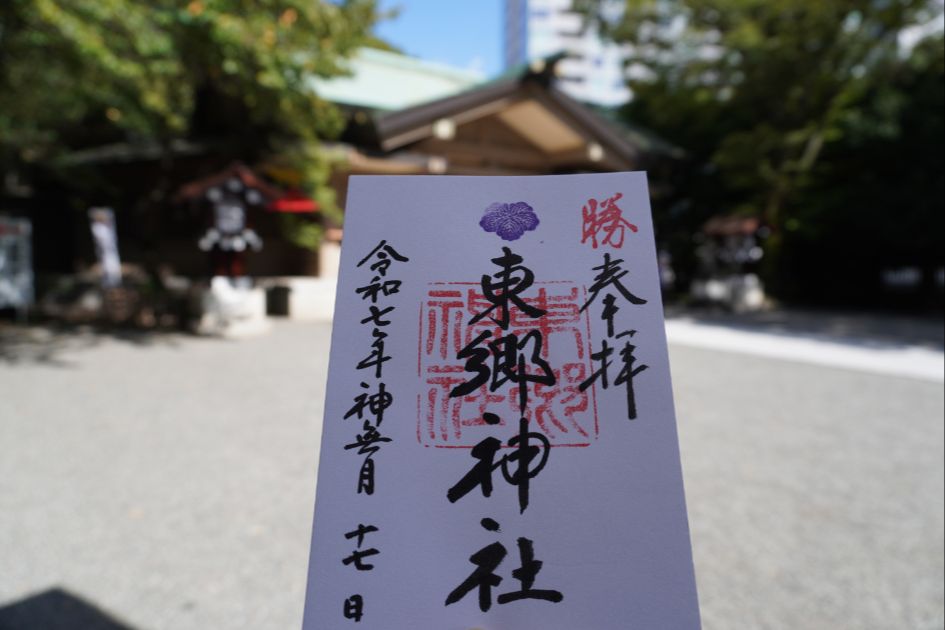 勝
奉拝
東郷神社
東郷神社
令和七年神無月 十七日